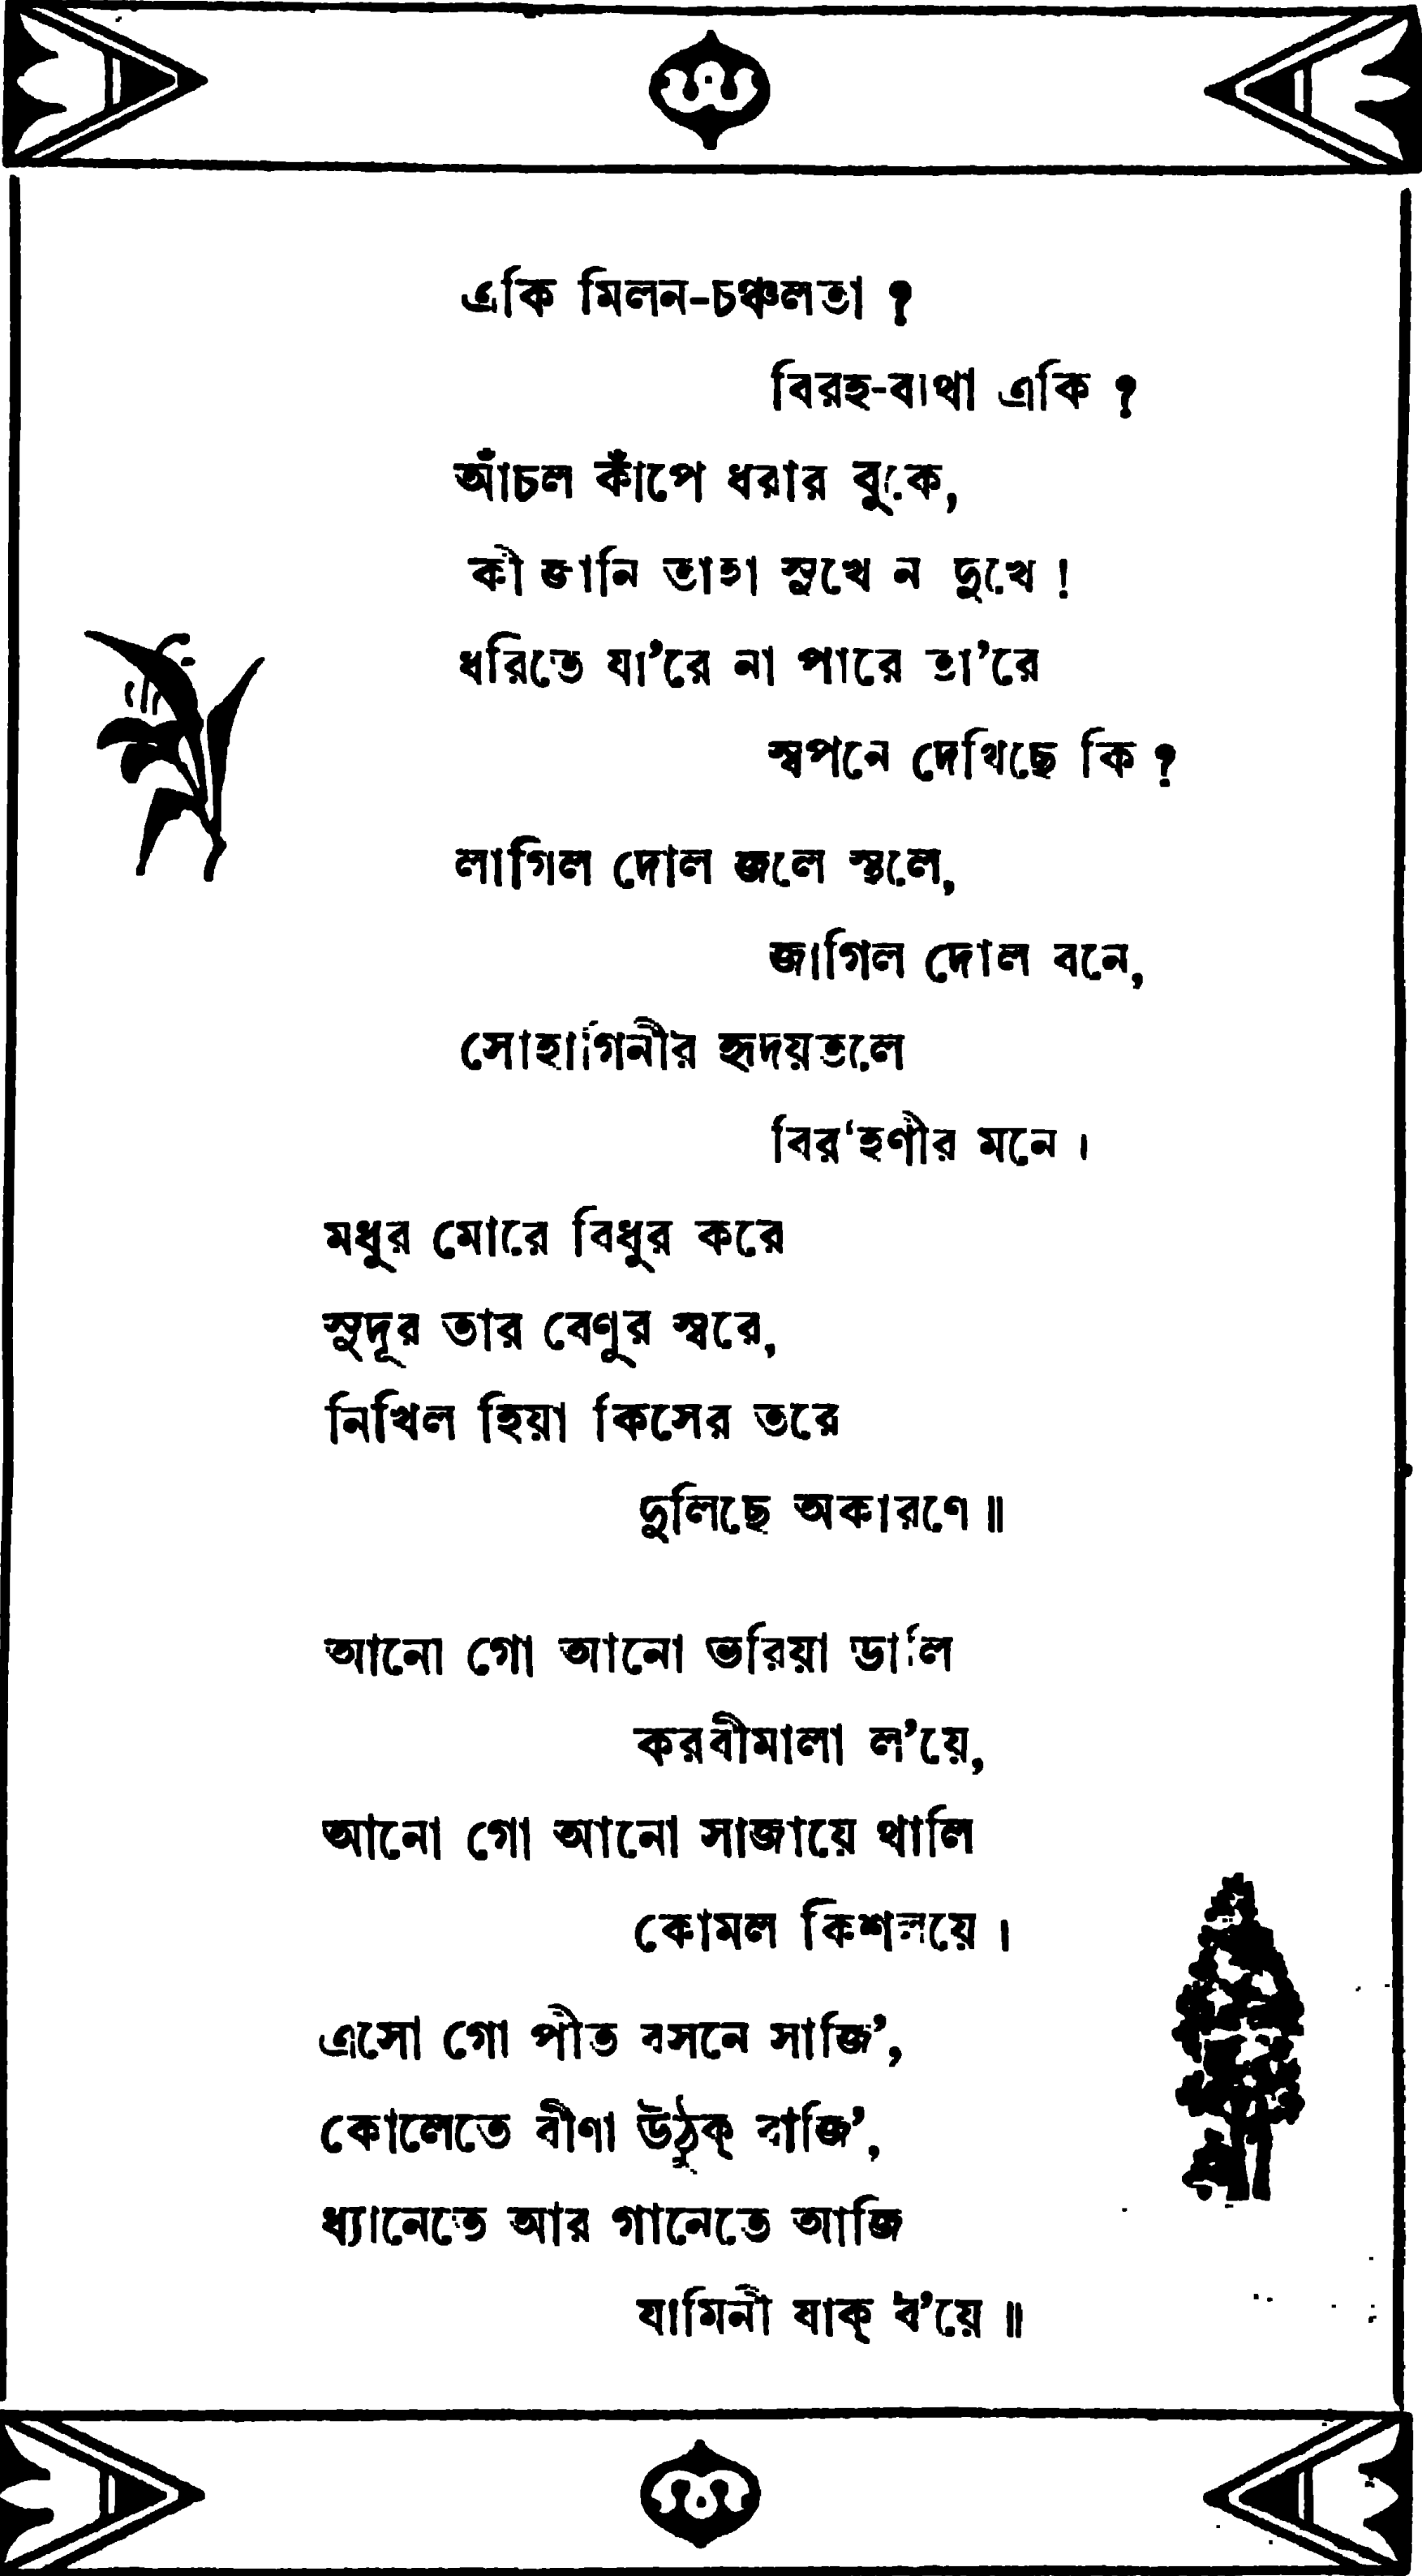 একি মিলন-চঞ্চলতা ?
বিরহ-ব্যথা একি ?
আঁচল কাঁপে ধরার বুকে,
কী জানি তাহা সুখে ন দুখে !
ধরিতে যা’রে না পারে তা’রে
স্বপনে দেখিছে কি ?
লাগিল দোল জলে স্থলে,
জাগিল দোল বনে,
সোহাগিনীর হৃদয়তলে
বিরহিণীর মনে ।
মধুর মোরে বিধুর করে
সুদূর তার বেণুর স্বরে,
নিখিল হিয়া কিসের তরে
দুলিছে অকারণে ॥
আনো গো আনো ভরিয়া ডালি
করবীমালা ল’য়ে,
আনো গো আনো সাজায়ে থালি
কোমল কিশলয়ে ।
এসো গো পীত বসনে সাজি’,
কোলেতে বীণা উঠুক্ বাজি’,
ধ্যানেতে আর গানেতে আজি
যামিনী যাক্ ব’য়ে ॥